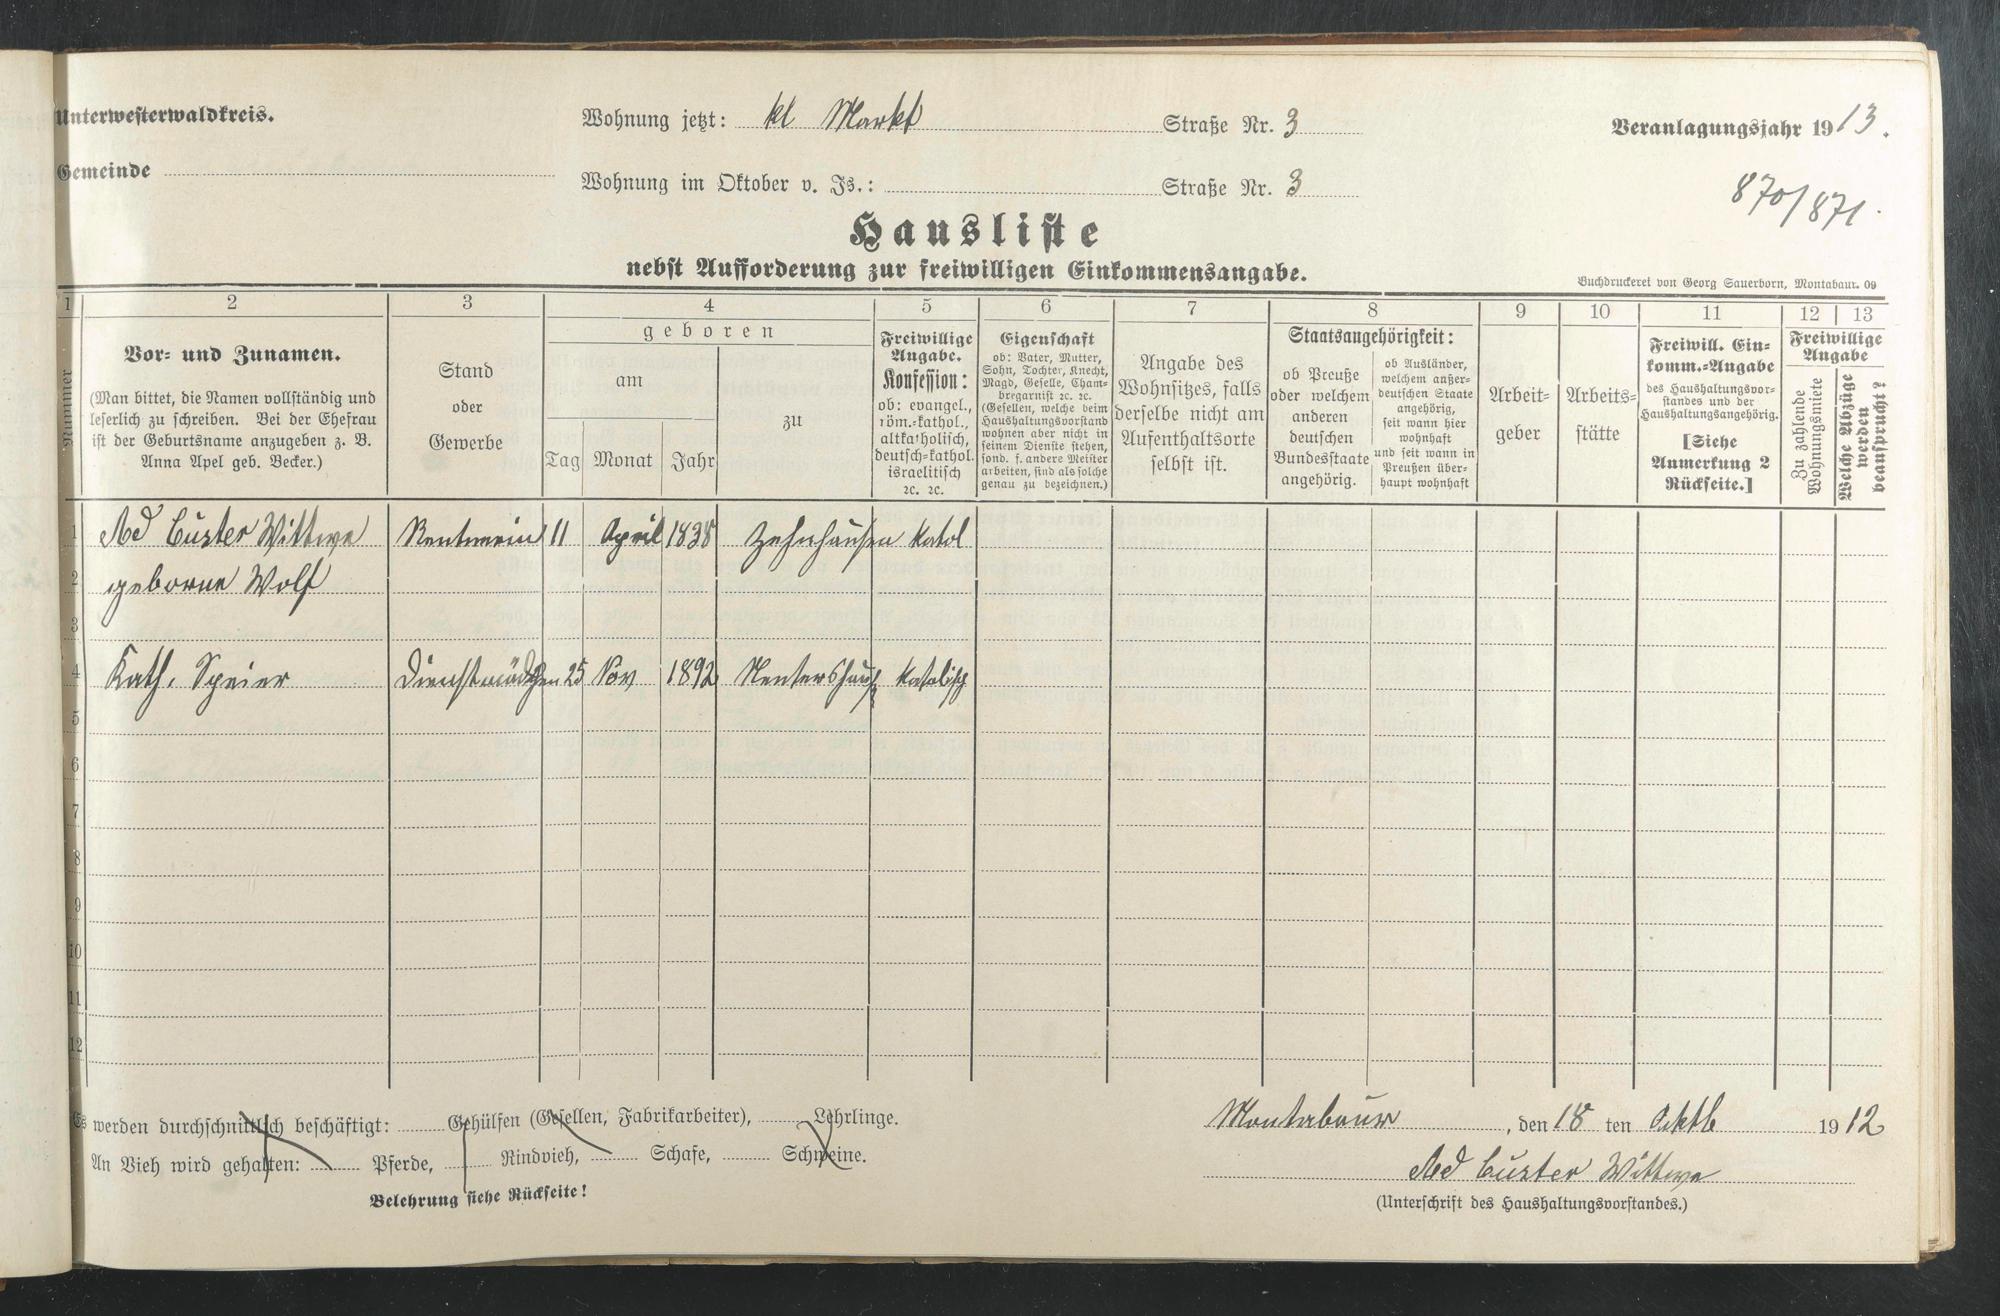 Unterwesterwaldkreis.
Wohnung jetzt: kl Markt Straße Nr. 3
Veranlagungsjahr 1913.
Gemeinde
Wohnung im Oktober v. Js.: Straße Nr. 3
870/871.
Hausliste
nebst Aufforderung zur freiwilligen Einkommensangabe.
Buchdruckerei von Georg Sauerborn, Montabaur. 09
1 2 3 4 5 6 7 8 9 10 11 12 13
Nummer
Vor- und Zunamen.
(Man bittet, die Namen vollständig und
leserlich zu schreiben. Bei der Ehefrau
ist der Geburtsname anzugeben z. B.
Anna Apel geb. Becker.)
Stand
oder
Gewerbe
geboren
am
Tag Monat Jahr
zu
Freiwillige
Angabe.
Konfession:
ob: evangel.,
röm.-kathol.,
altkatholisch,
deutsch-kathol.
israelitisch
ꝛc. ꝛc.
Eigenschaft
ob: Vater, Mutter,
Sohn, Tochter, Knecht,
Magd, Geselle, Cham-
bregarnist ꝛc. ꝛc.
(Gesellen, welche beim
Haushaltungsvorstand
wohnen aber nicht in
seinem Dienste stehen,
sond. f. andere Meister
arbeiten, sind als solche
genau zu bezeichnen.)
Angabe des
Wohnsitzes, falls
derselbe nicht am
Aufenthaltsorte
selbst ist.
Staatsangehörigkeit:
ob Preuße
oder welchem
anderen
deutschen
Bundesstaate
angehörig.
ob Ausländer,
welchem außer-
deutschen Staate
angehörig,
seit wann hier
wohnhaft
und seit wann in
Preußen über-
haupt wohnhaft
Arbeit-
geber
Arbeits-
stätte
Freiwill. Ein-
komm.-Angabe
des Haushaltungsvor-
standes und der
Haushaltungsangehörig.
[Siehe
Anmerkung 2
Rückseite.]
Freiwillige
Angabe
Zu zahlende
Wohnungsmiete
Welche Abzüge
werden
beansprucht?
1 Ad Custer Wittwe Rentnerin 11 April 1838 Zehnhausen Katol
2 geborne Wolf
3
4 Kath. Speier Dienstmädchen 25 Nov 1892 Nentershaus Katolisch
5
6
7
8
9
10
11
12
Es werden durchschnittlich beschäftigt: Gehülfen (Gesellen, Fabrikarbeiter), Lehrlinge.
An Vieh wird gehalten: Pferde, Rindvieh, Schafe, Schweine.
Belehrung siehe Rückseite!
Montabaur, den 18 ten Oktb 1912
Ad Custer Wittwe
(Unterschrift des Haushaltungsvorstandes.)